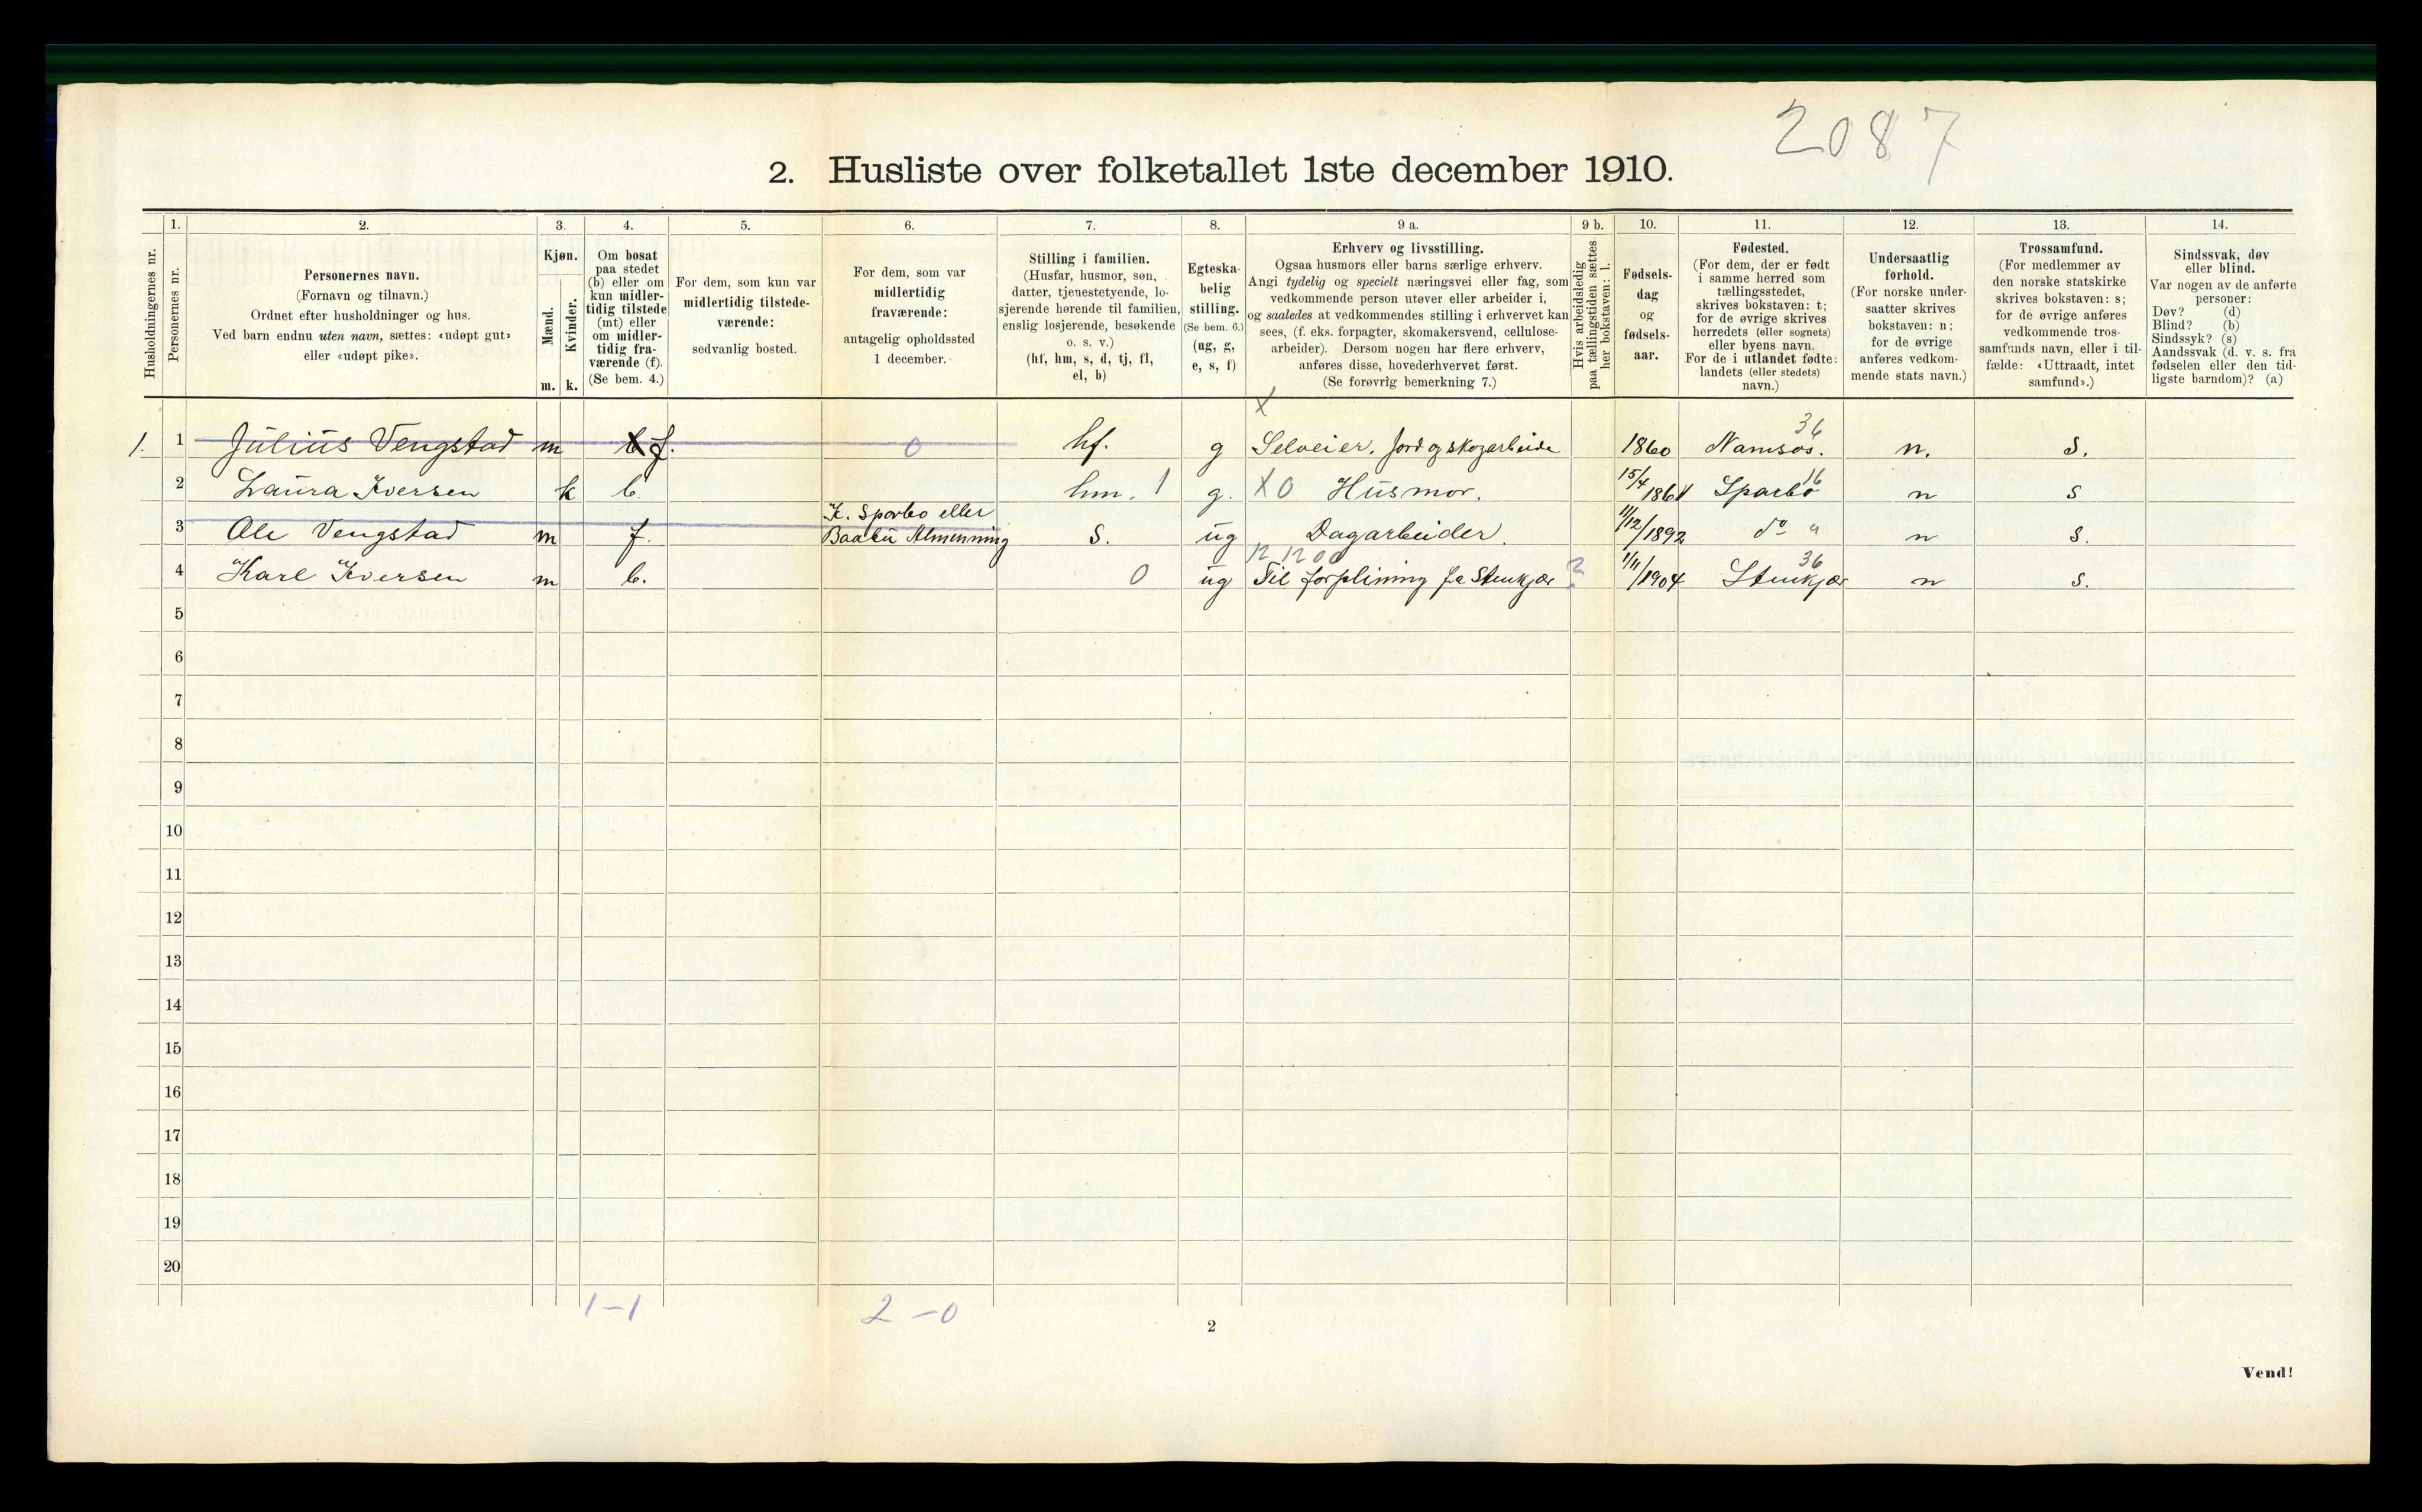 2087
2. Husliste over folketallet 1ste december 1910.
Husholdningernes nr.
1.
Personernes nr.
2.
Personernes navn.
(Fornavn og tilnavn.)
Ordnet efter husholdninger og hus.
Ved barn endnu uten navn, sættes: «udøpt gut»
eller «udøpt pike».
3.
Kjøn.
Mænd.
Kvinder.
m. k.
4.
Om bosat
paa stedet
(b) eller om
kun midler-
tidig tilstede
(mt) eller
om midler-
tidig fra-
værende (f).
(Se bem. 4.)
5.
For dem, som kun var
midlertidig tilstede-
værende:
sedvanlig bosted.
6.
For dem, som var
midlertidig
fraværende:
antagelig opholdssted
1 december.
7.
Stilling i familien.
(Husfar, husmor, søn,
datter, tjenestetyende, lo-
sjerende hørende til familien,
enslig losjerende, besøkende
o. s. v.)
(hf, hm, s, d, tj, fl,
el, b)
8.
Egteska-
belig
stilling.
(Se bem. 6.)
(ug, g,
e, s, f)
9 a.
Erhverv og livsstilling.
Ogsaa husmors eller barns særlige erhverv.
Angi tydelig og specielt næringsvei eller fag, som
vedkommende person utøver eller arbeider i,
og saaledes at vedkommendes stilling i erhvervet kan
sees, (f. eks. forpagter, skomakersvend, cellulose-
arbeider). Dersom nogen har flere erhverv,
anføres disse, hovederhvervet først.
(Se forøvrig bemerkning 7.)
9 b.
Hvis arbeidsledig
paa tællingstiden sættes
her bokstaven: l.
10.
Fødsels-
dag
og
fødsels-
aar.
11.
Fødested.
(For dem, der er født
i samme herred som
tællingsstedet,
skrives bokstaven: t;
for de øvrige skrives
herredets (eller sognets)
eller byens navn.
For de i utlandet fødte:
landets (eller stedets)
navn.)
12.
Undersaatlig
forhold.
(For norske under-
saatter skrives
bokstaven: n;
for de øvrige
anføres vedkom-
mende stats navn.)
13.
Trossamfund.
(For medlemmer av
den norske statskirke
skrives bokstaven: s;
for de øvrige anføres
vedkommende tros-
samfunds navn, eller i til-
fælde: «Uttraadt, intet
samfund».)
14.
Sindssvak, døv
eller blind.
Var nogen av de anførte
personer:
Døv? (d)
Blind? (b)
Sindssyk? (s)
Aandssvak (d. v. s. fra
fødselen eller den tid-
ligste barndom)? (a)
x 36
1. 1 Julius Vengstad m b f. 0 hf. g Selveier. Jord og skogarbeide 1860 Namsos. n. s.
16
2 Laura Iversen k b. hm. 1 g. x 0 Husmor. 15/4 1861 Sparbo n s
K. Sparbo eller
3 Ole Vengstad m f. Almenning s. ug Dagarbeider. 11/12/1892 do " n s.
12 1200 36
4 Karl Iversen m b. 0 ug Til forpleining fra Stenkjær ? 1/11/1904 Stenkjær n s.
5
6
7
8
9
10
11
12
13
14
15
16
17
18
19
20
1-1 2-0
2
Vend!